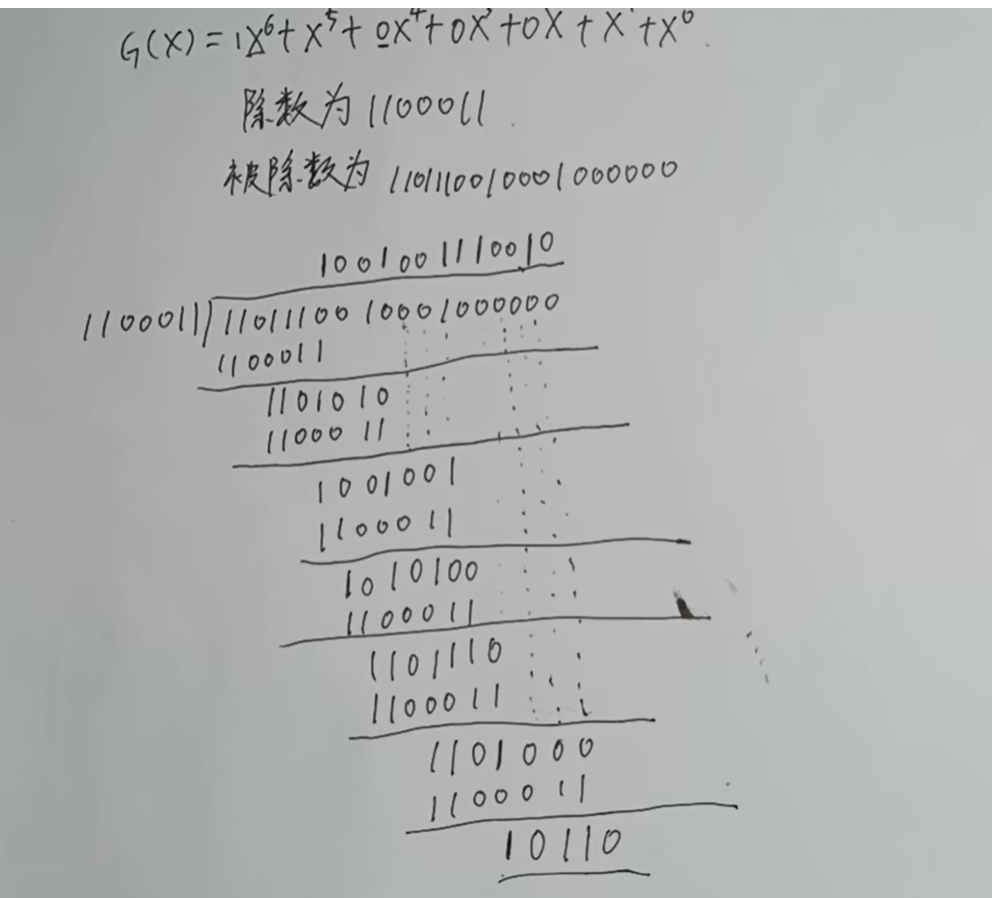 G(X) = 1X⁶ + X⁵ + 0X⁴ + 0X³ + 0X + X¹ + X⁰.
除数为 1100011.
被除数为 1101110010001000000
1001001110010
1100011 1101110010001000000
1100011
1101010
1100011
1001001
1100011
1010100
1100011
1101110
1100011
1101000
1100011
10110